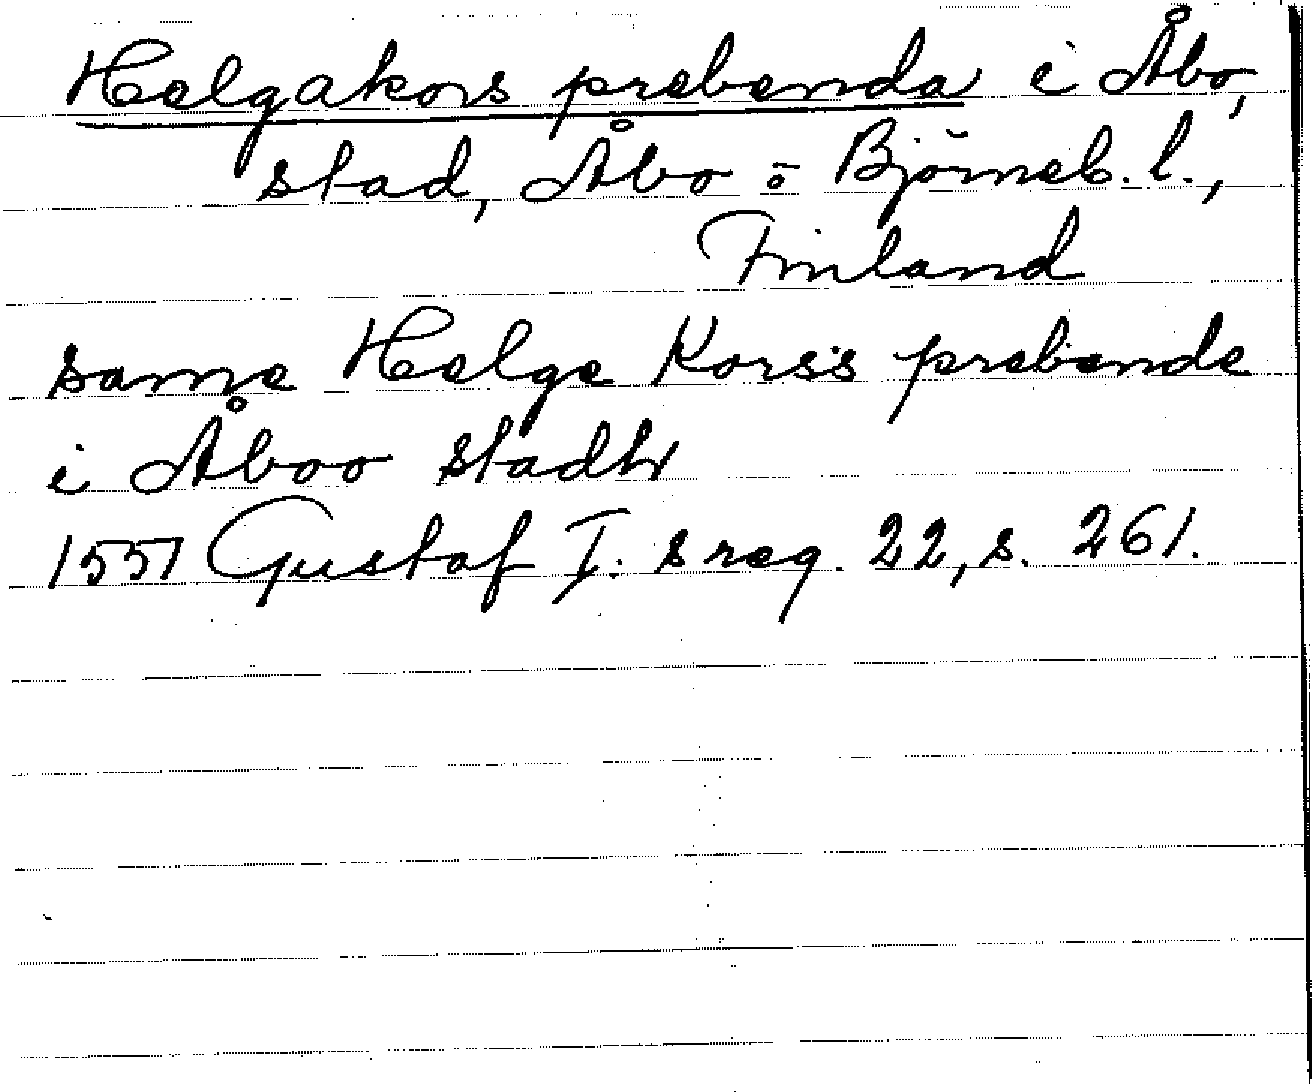 Helgakors prebenda i Åbo,
stad, Åbo o Björneb. l.,
Finland
same Helge Korss prebende
i Åboo stadh
1551 Gustaf I. s reg. 22, s. 261.